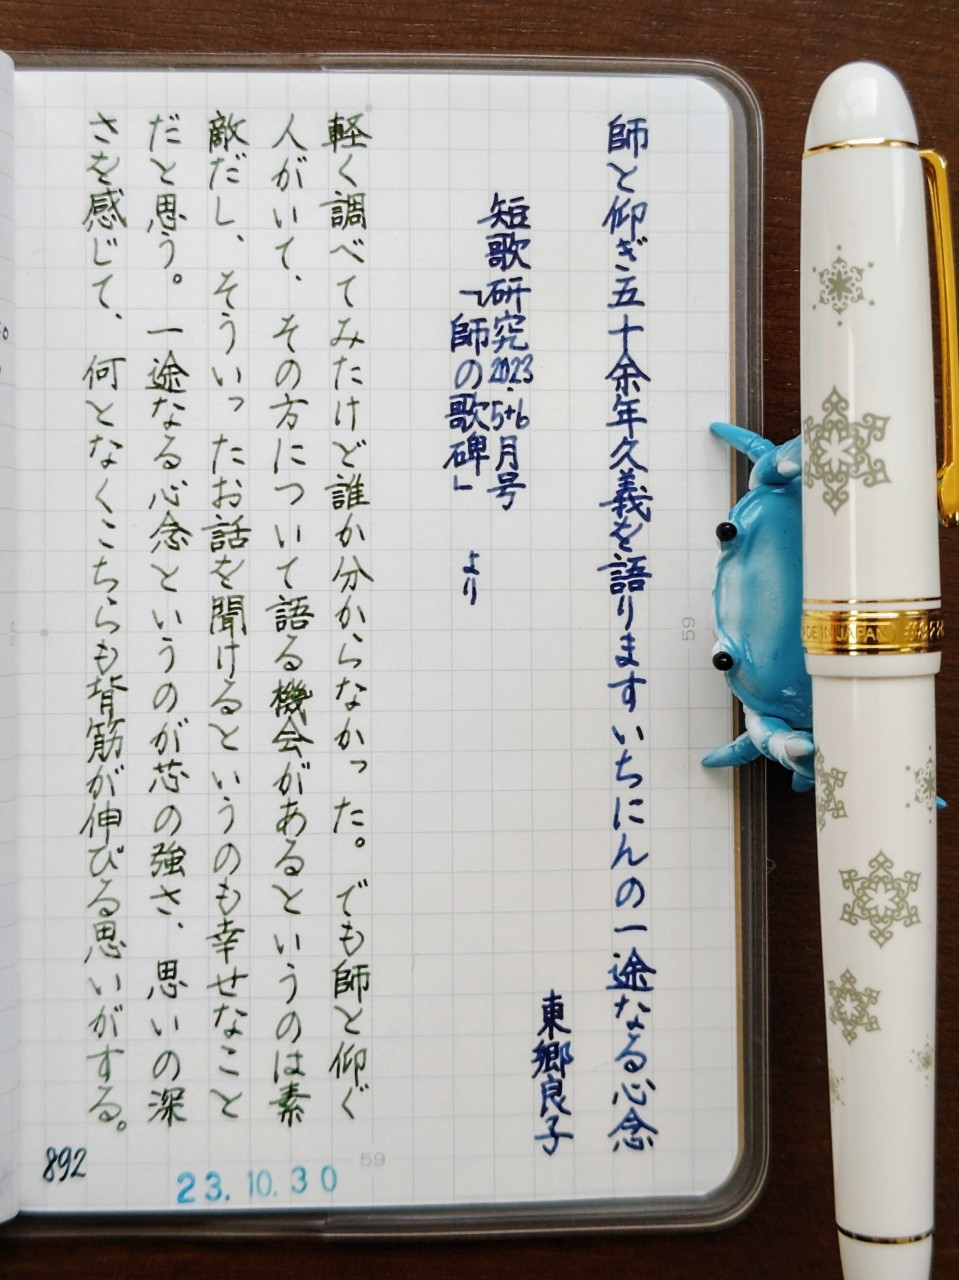 師と仰ぎ五十余年久義を語りますいちにんの一途なる心念
東郷良子
短歌研究2023.5+6月号
「師の歌碑」より
軽く調べてみたけど誰か分からなかった。でも師と仰ぐ
人がいて、その方について語る機会があるというのは素
敵だし、そういったお話を聞けるというのも幸せなこと
だと思う。一途なる心念というのが芯の強さ、思いの深
さを感じて、何となくこちらも背筋が伸びる思いがする。
892
23.10.30
59
59
MADE IN JAPAN